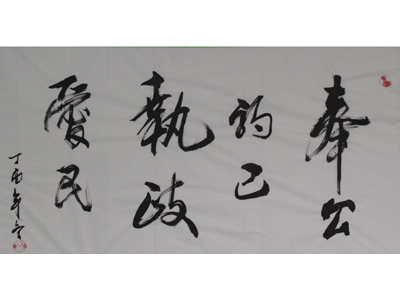 奉公
约己
執政
愛民
丁酉年冬